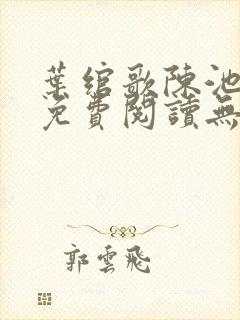 葉綰歌陳池
免費閱讀無
郭雲飛